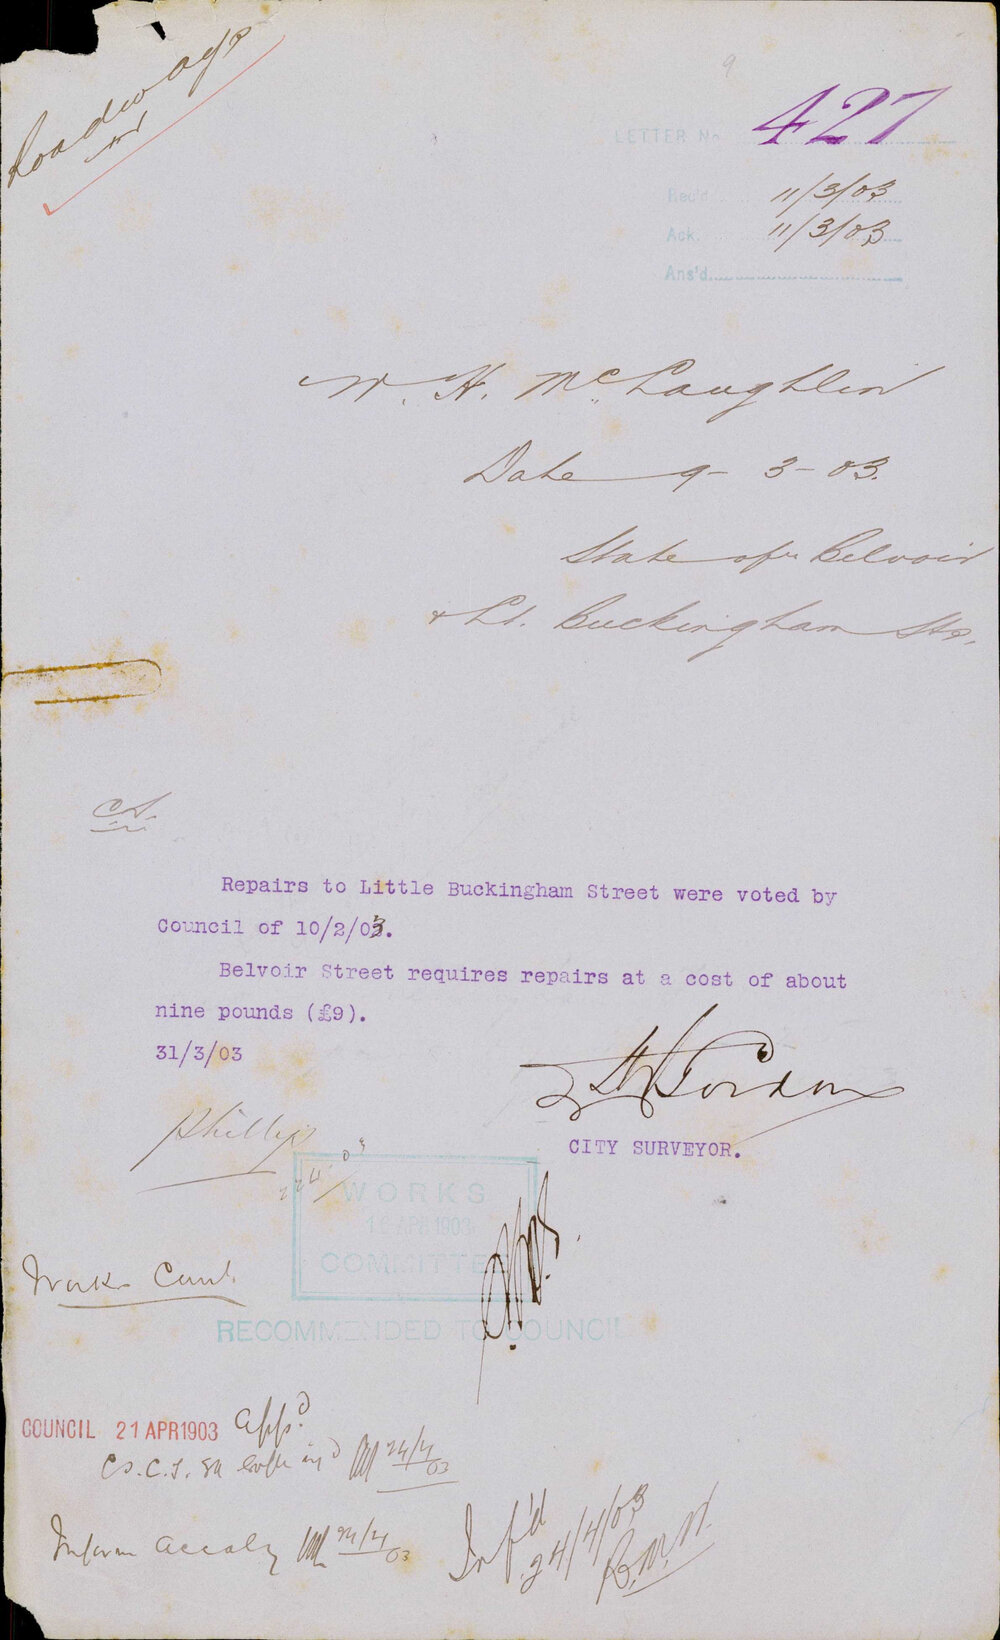 Roadways
9
LETTER No. 427
Rec'd 11/3/03
Ack. 11/3/03
Ans'd
W. H. McLaughlin
Date 9-3-03.
State of Belvoir
& Lt. Buckingham Sts.
C.S.
Repairs to Little Buckingham Street were voted by
Council of 10/2/03.
Belvoir Street requires repairs at a cost of about
nine pounds (£9).
31/3/03
CITY SURVEYOR.
Phillips
WORKS
COMMITTEE
APR 1903
Works Comt.
RECOMMENDED TO COUNCIL
COUNCIL 21 APR 1903 App'd
24/4/03
Inform accdly 24/4/03
Inf'd
24/4/03